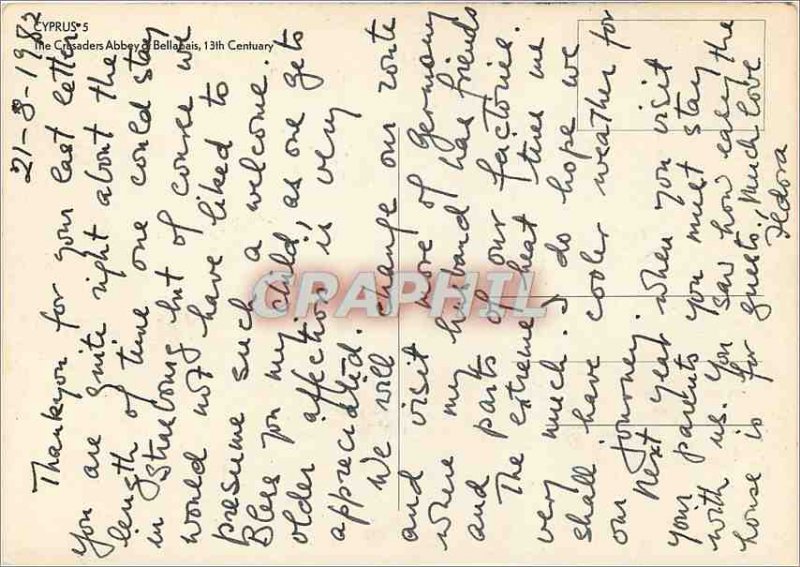 CYPRUS 5
The Crusaders Abbey of Bellapais, 13th Centuary
21-8-1982
Thankyou for your last letter
you are quite right about the
length of time one could stay
in Strasbourg but of course we
would not have liked to
presume such a welcome.
Bless you my child, as one gets
older affection is very
appreciated.
We will change our route
and visit more of Germany
where my husband has friends
and parts of our factories.
The extreme heat tires me
very much. I do hope we
shall have cooler weather for
our journey.
Next year when you visit
your parents you must stay
with us. You saw how easy the
house is for guests! Much love
Fedora
GRAPHIL